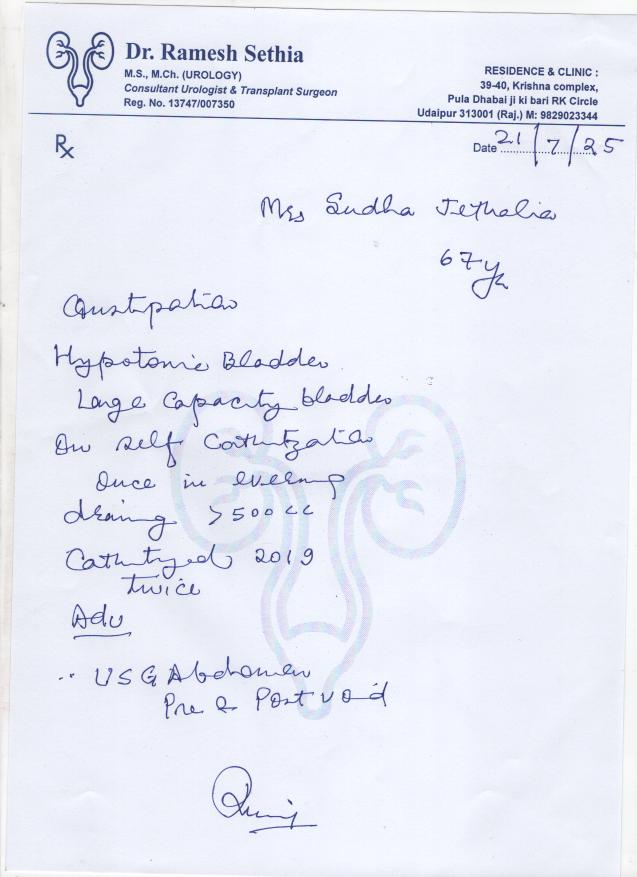 Dr. Ramesh Sethia
M.S., M.Ch. (UROLOGY)
Consultant Urologist & Transplant Surgeon
Reg. No. 13747/007350
RESIDENCE & CLINIC :
39-40, Krishna complex,
Pula Dhabai ji ki bari RK Circle
Udaipur 313001 (Raj.) M: 9829023344
Rx
Date 21/7/25
Mrs Sudha Jethalia
67 yr
Constipation
Hypotonic Bladder
Large Capacity bladder
On self Cathetization
Once in evening
draining >500cc
Cathetyzed 2019
twice
Adv
USG Abdomen
Pre & Post void